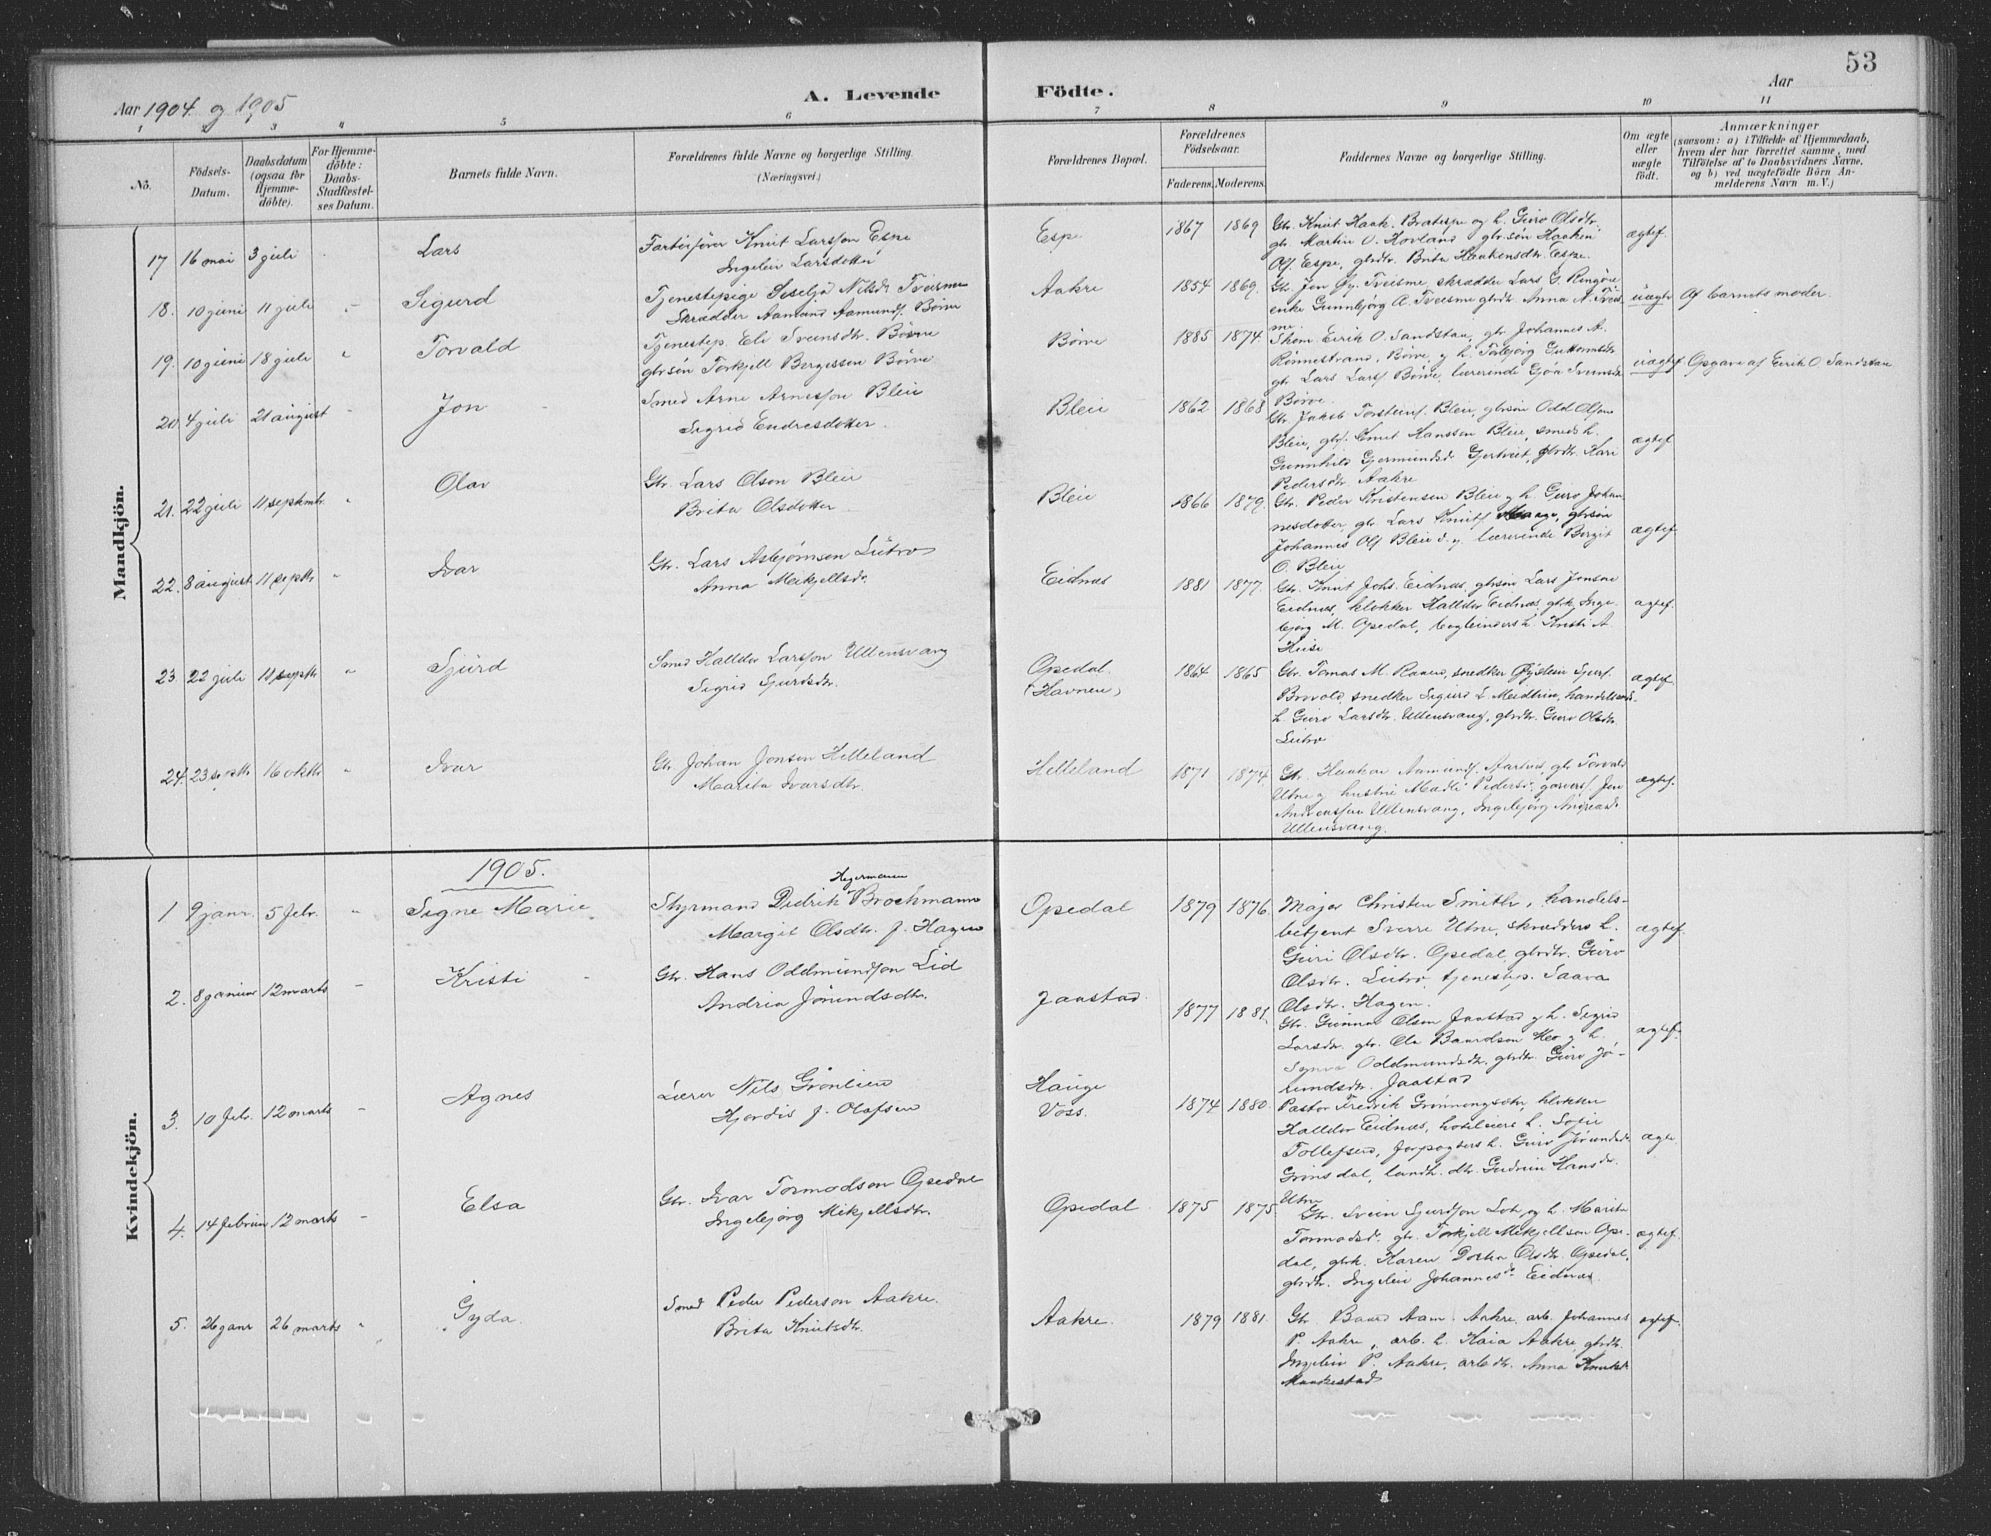 53
Aar 1904 og 1905
A. Levende Födte.
Aar
1 2 3 4 5 6 7 8 9 10 11
No.
Födsels-Datum.
Daabsdatum (ogsaa for Hjemme-döbte).
For Hjemme-döbte: Daabs-Stadfæstel-ses Datum.
Barnets fulde Navn.
Forældrenes fulde Navne og borgerlige Stilling. (Næringsvei.)
Forældrenes Bopæl.
Forældrenes Födselsaar.
Faderens. Moderens.
Faddernes Navne og borgerlige Stilling.
Om ægte eller uægte födt.
Anmærkninger
(saasom: a) i Tilfælde af Hjemmedaab, hvem der har forrettet samme, med Tilföielse af to Daabsvidners Navne, og b) ved uægtefödte Börn Anmelderens Navn m. V.)
Mandkjön.
17 16 mai 3 juli Lars
Knut Larsson Espe
Ingeleiv Larsdotter
Espe 1867 1869
Gbr. Knut Haak. Bratespe og h. Guro Olsdtr.
gbr. Martin O. Hovland gbrsøn Haakon
Olss. Espe, gbrdtr. Brita Haakensdtr. Espe.
ægtef.
18. 10 juni 11 juli Sigurd
Tjenestepige Seselja Nilsdr. Tveisme
Skrædder Aamund Aamundss. Børve
Aakre 1854 1869.
Gbr. Jon Øy. Tveisme, skrædder Lars G. Ringøre
enke Gunnbjørg A. Tveisme gbrdtr. Anna N. Tveis-
me.
uægte Af barnets moder.
19. 10 juni 18 juli Torvald
Tjenestep. Eli Sveinsdtr. Børve
gbrsøn Torkjell Bergesson Børve
Børve 1885 1874.
Eirik O. Sandstaa, gbr. Johannes A.
Rønnestrand, Børve, og h. Torbjørg Guttormsdtr
gbr. Lars Larss. Børve, lærerinde Gjøa Sveinsdr
Børve.
uægtef. Opgave af Eirik O. Sandstaa
20. 4 juli 21 august Jon
Smed Arne Arnesson Bleie
Sigrid Endresdotter.
Bleie 1862 1868
Gbr. Jakob Torsteins. Bleie, gbrsøn Odd Olson
Bleie, gbr. Knut Hanssen Bleie, smeds h.
Gunnhild Gjermundsd. Gjertveit, gbrdtr. Kari
Pedersdtr. Aakre
ægtef
21. 22 juli 11 septmbr. Olav
Gbr. Lars Olson Bleie
Brita Olsdotter
Bleie 1866 1879.
Gbr. Peder Kristensen Bleie og h. Guro Johan-
nesdotter, gbr. Lars Knuts. Maage, gbrsøn
Johannes Ols. Bleie og lærerinde Bergit
O. Bleie
ægtef.
22. 8 august 11 septbr. Ivar
Gbr. Lars Asbjørnsen Lutro
Anna Mikjellsdr.
Eidnes 1881 1877.
Gbr. Knut Johs. Eidnes, gbrsøn Lars Jonson
Eidnes, klokker Halldor Eidnes, gbrk. Inge-
bjørg M. Opedal, Kristi A.
ægtef.
23. 22 juli 11 septbr. Sjurd
Smed Halldor Larsson Ullensvang
Sigrid Sjurdsdr.
Opedal.
(Havnen)
1864 1865
Gbr. Tomas M. Raaen, snedker Øystein Sjurs.
snedker Sigurd L. Meidtun, handelsmands
h. Guro Larsdr. Ullensvang, gbrdtr. Guro Olsdtr.
Lutro
ægtef.
24. 23 septbr. 16 oktbr. Ivar
Gbr. Johan Jonson Helleland
Marita Ivarsdtr.
Helleland 1871 1874.
Gbr. Haakon Aamundss. Aarhus, gbr. Torvald
Utne og hustru Madli Pedersd., Jon
Andreassen Ullensvang, Ingebjørg Andreasd.
Ullensvang.
ægtef.
Kvindekjön.
1905.
1 9 janr. 5 febr. Signe Marie
Hegermann
Styrmand Didrik Brochmann
Margit Olsdtr. f. Hagen
Opedal 1879 1876.
Major Christen Smith, handels-
betjent Sverre Utne, skrædders h.
Guri Olsdtr. Opedal, gbrdtr. Guro
Olsdtr. Lutro, tjenestep. Saava
Olsdtr. Hagen.
ægtef.
2. 8 januar 12 marts Kristi
Gbr. Hans Oddmundson Lid
Andrea Jørundsdtr.
Jaastad. 1877 1881.
Gbr. Gunnar Olson Jaastad og h. Sigrid
Larsdtr. gbr. Ola Baardson Mo og h.
Synva Oddmundsdtr. gbrdtr. Guro Jø-
rundsdtr. Jaastad
ægtef.
3. 10 febr. 12 marts Agnes
Lærer Nils Grønlien
Hjordis f. Olafsen
Hauge
Voss.
1874 1880.
Pastor Fredrik Grønningsæter, klokker
Halldor Eidnes, hoteleiers h. Sofie
Tollefsen, forpagters h. Guro Jørundsdr
Grimsdal, landh. dtr. Gudrun Hansdr.
Utne
ægte.
4. 14 februar 12 marts Elsa
Gbr. Ivar Tormodson Opedal
Ingebjørg Mikjellsdtr.
Opedal. 1875 1875
Gbr. Svein Sjurdson Lote og h. Marita
Tormodsd. gbr. Torkjell Mikjellson Ope-
dal, gbrk. Karen Dortea Olsdtr. Opedal,
gbrdtr. Ingeleiv Johannesd. Eidnes.
ægtef.
5. 26 janr 26 marts Gyda.
Smed Peder Pederson Aakre.
Brita Knutsdtr.
Aakre. 1879 1881.
Gbr. Baard Aam. Aakre, arb. Johannes
P. Aakre, arb. h. Kaia Aakre, gbrdtr.
Ingeleiv P. Aakre, arb.dtr. Anna Knutsd.
Maakestad
ægtef.